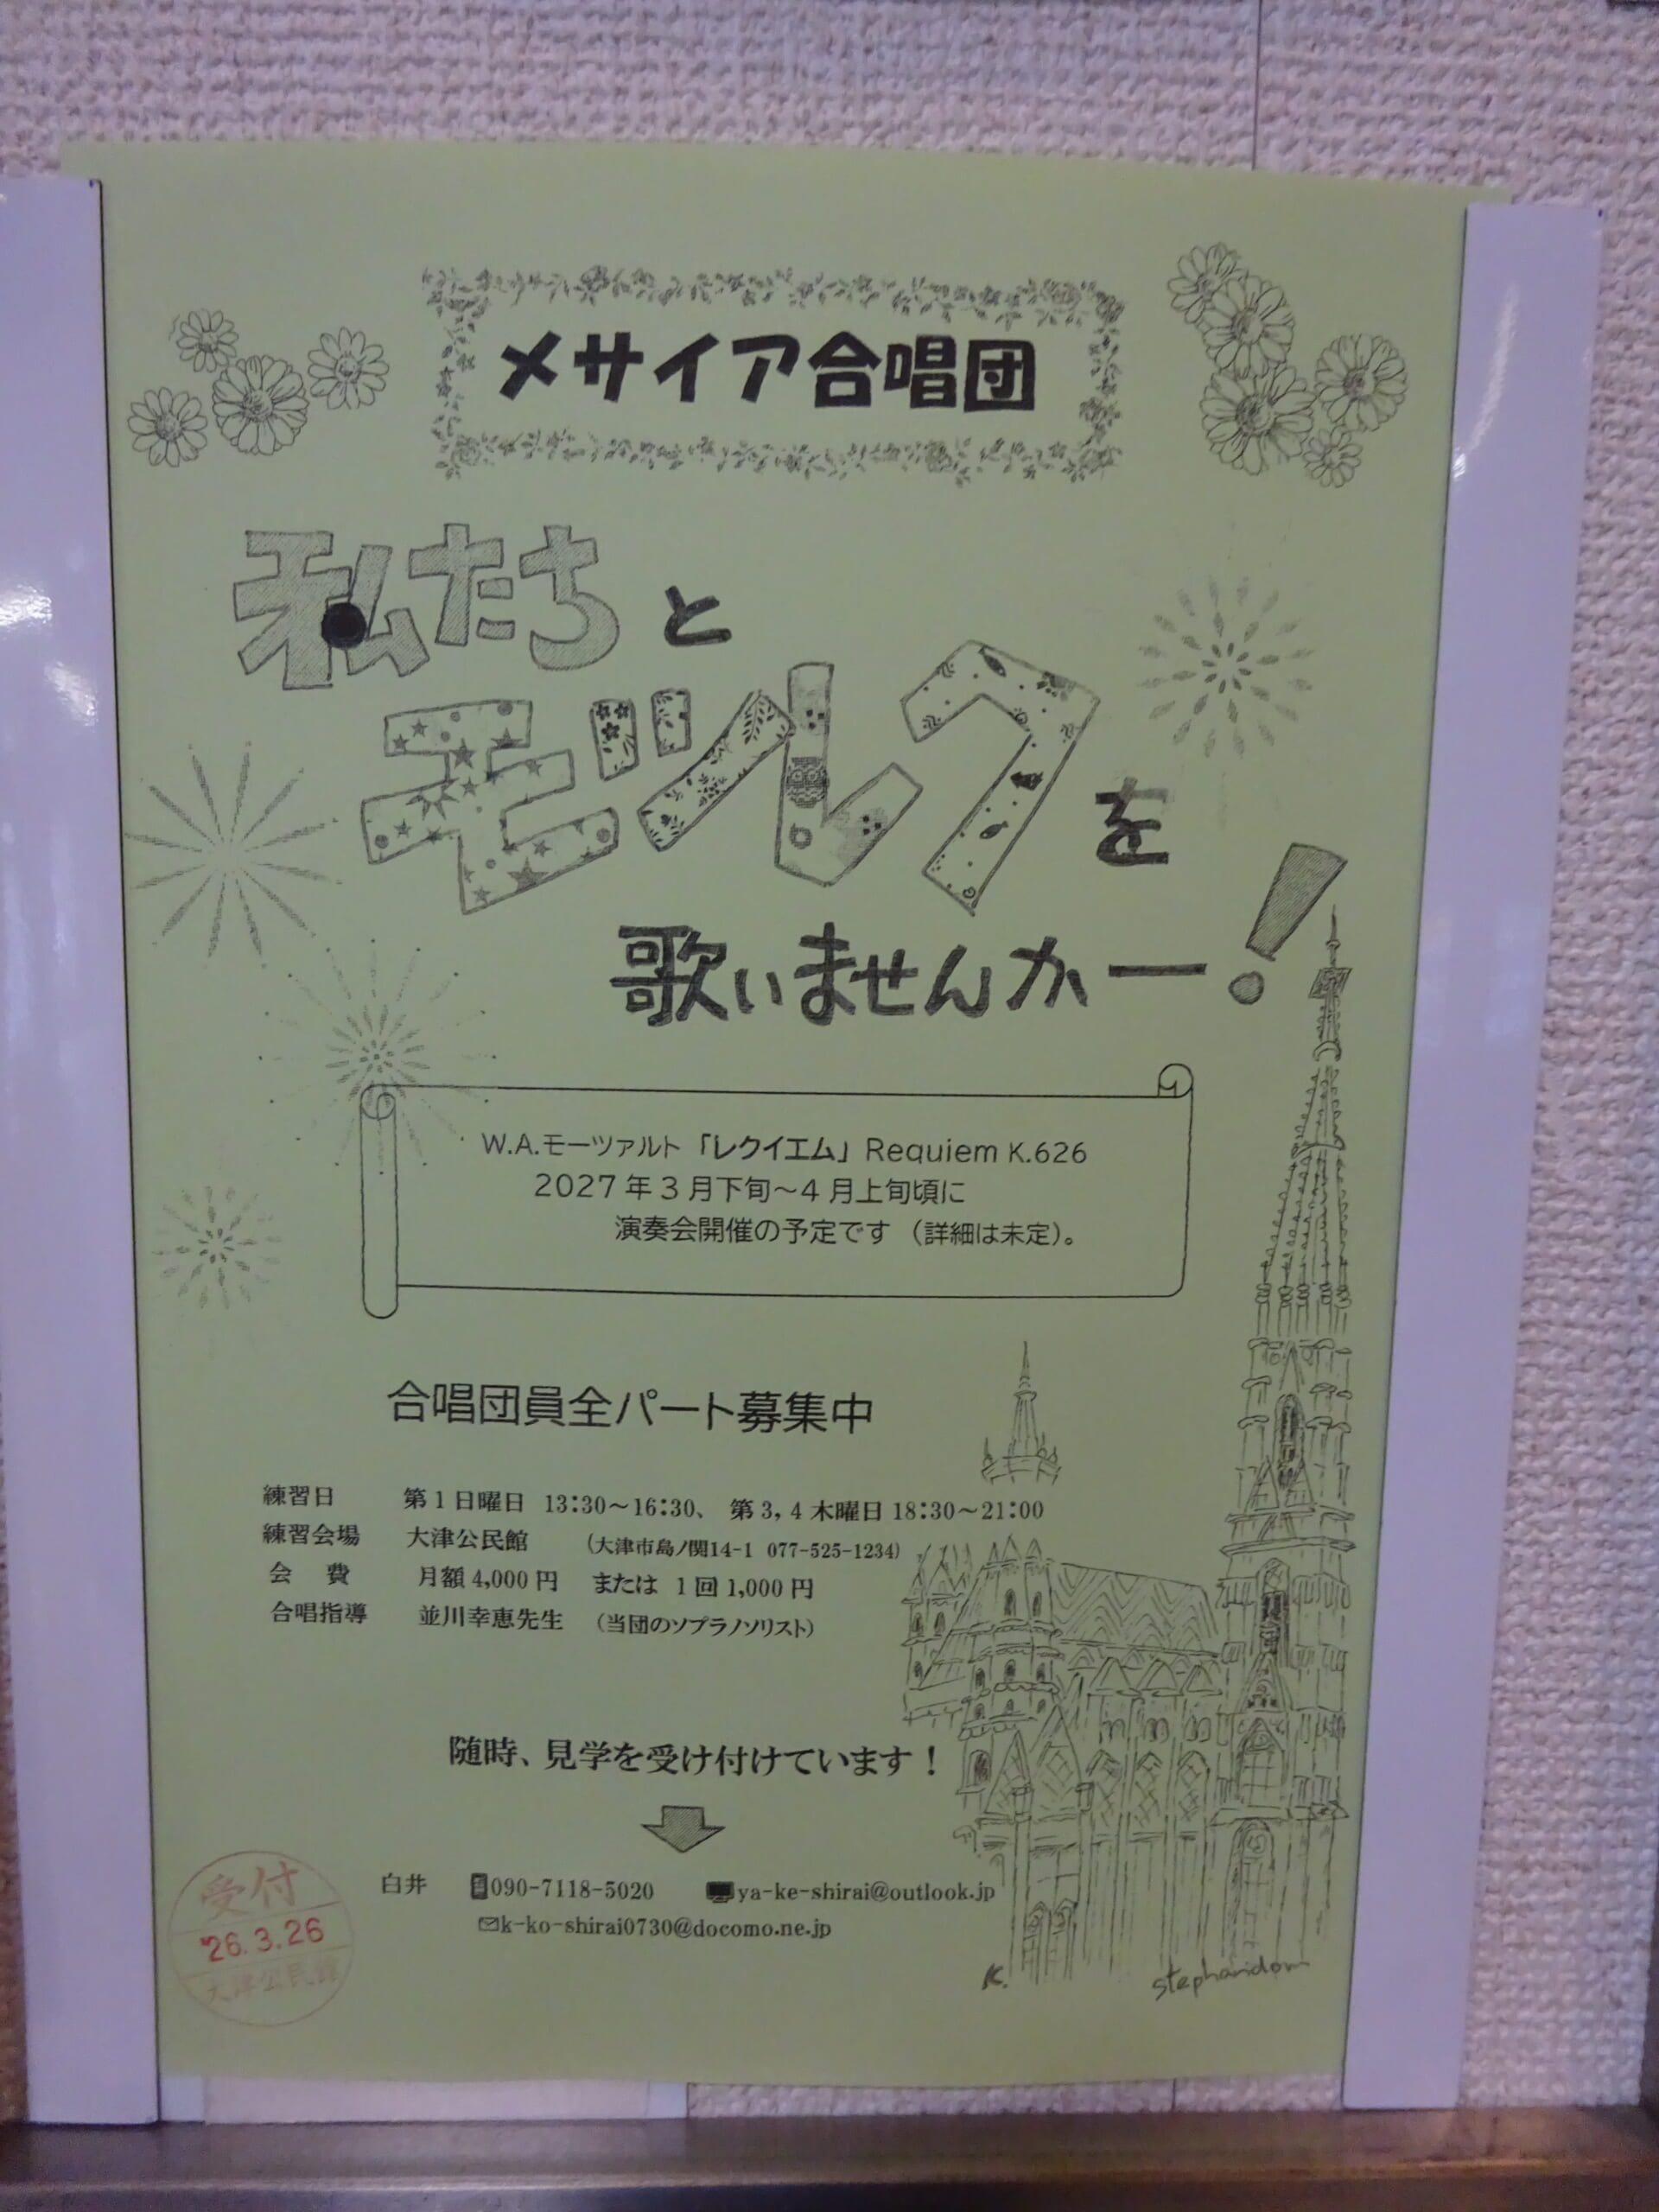 メサイア合唱団
私たちと
モツレクを
歌いませんかー!
W.A.モーツァルト「レクイエム」Requiem K.626
2027年3月下旬～4月上旬頃に
演奏会開催の予定です（詳細は未定）。
合唱団員全パート募集中
練習日　第1日曜日 13:30～16:30、 第3,4木曜日 18:30～21:00
練習会場　大津公民館　（大津市島ノ関14-1 077-525-1234）
会　費　月額4,000円　または 1回1,000円
合唱指導　並川幸恵先生　（当団のソプラノソリスト）
随時、見学を受け付けています！
白井　090-7118-5020　ya-ke-shirai@outlook.jp
k-ko-shirai0730@docomo.ne.jp
受付
'26.3.26
大津公民館
K.
stephansdom